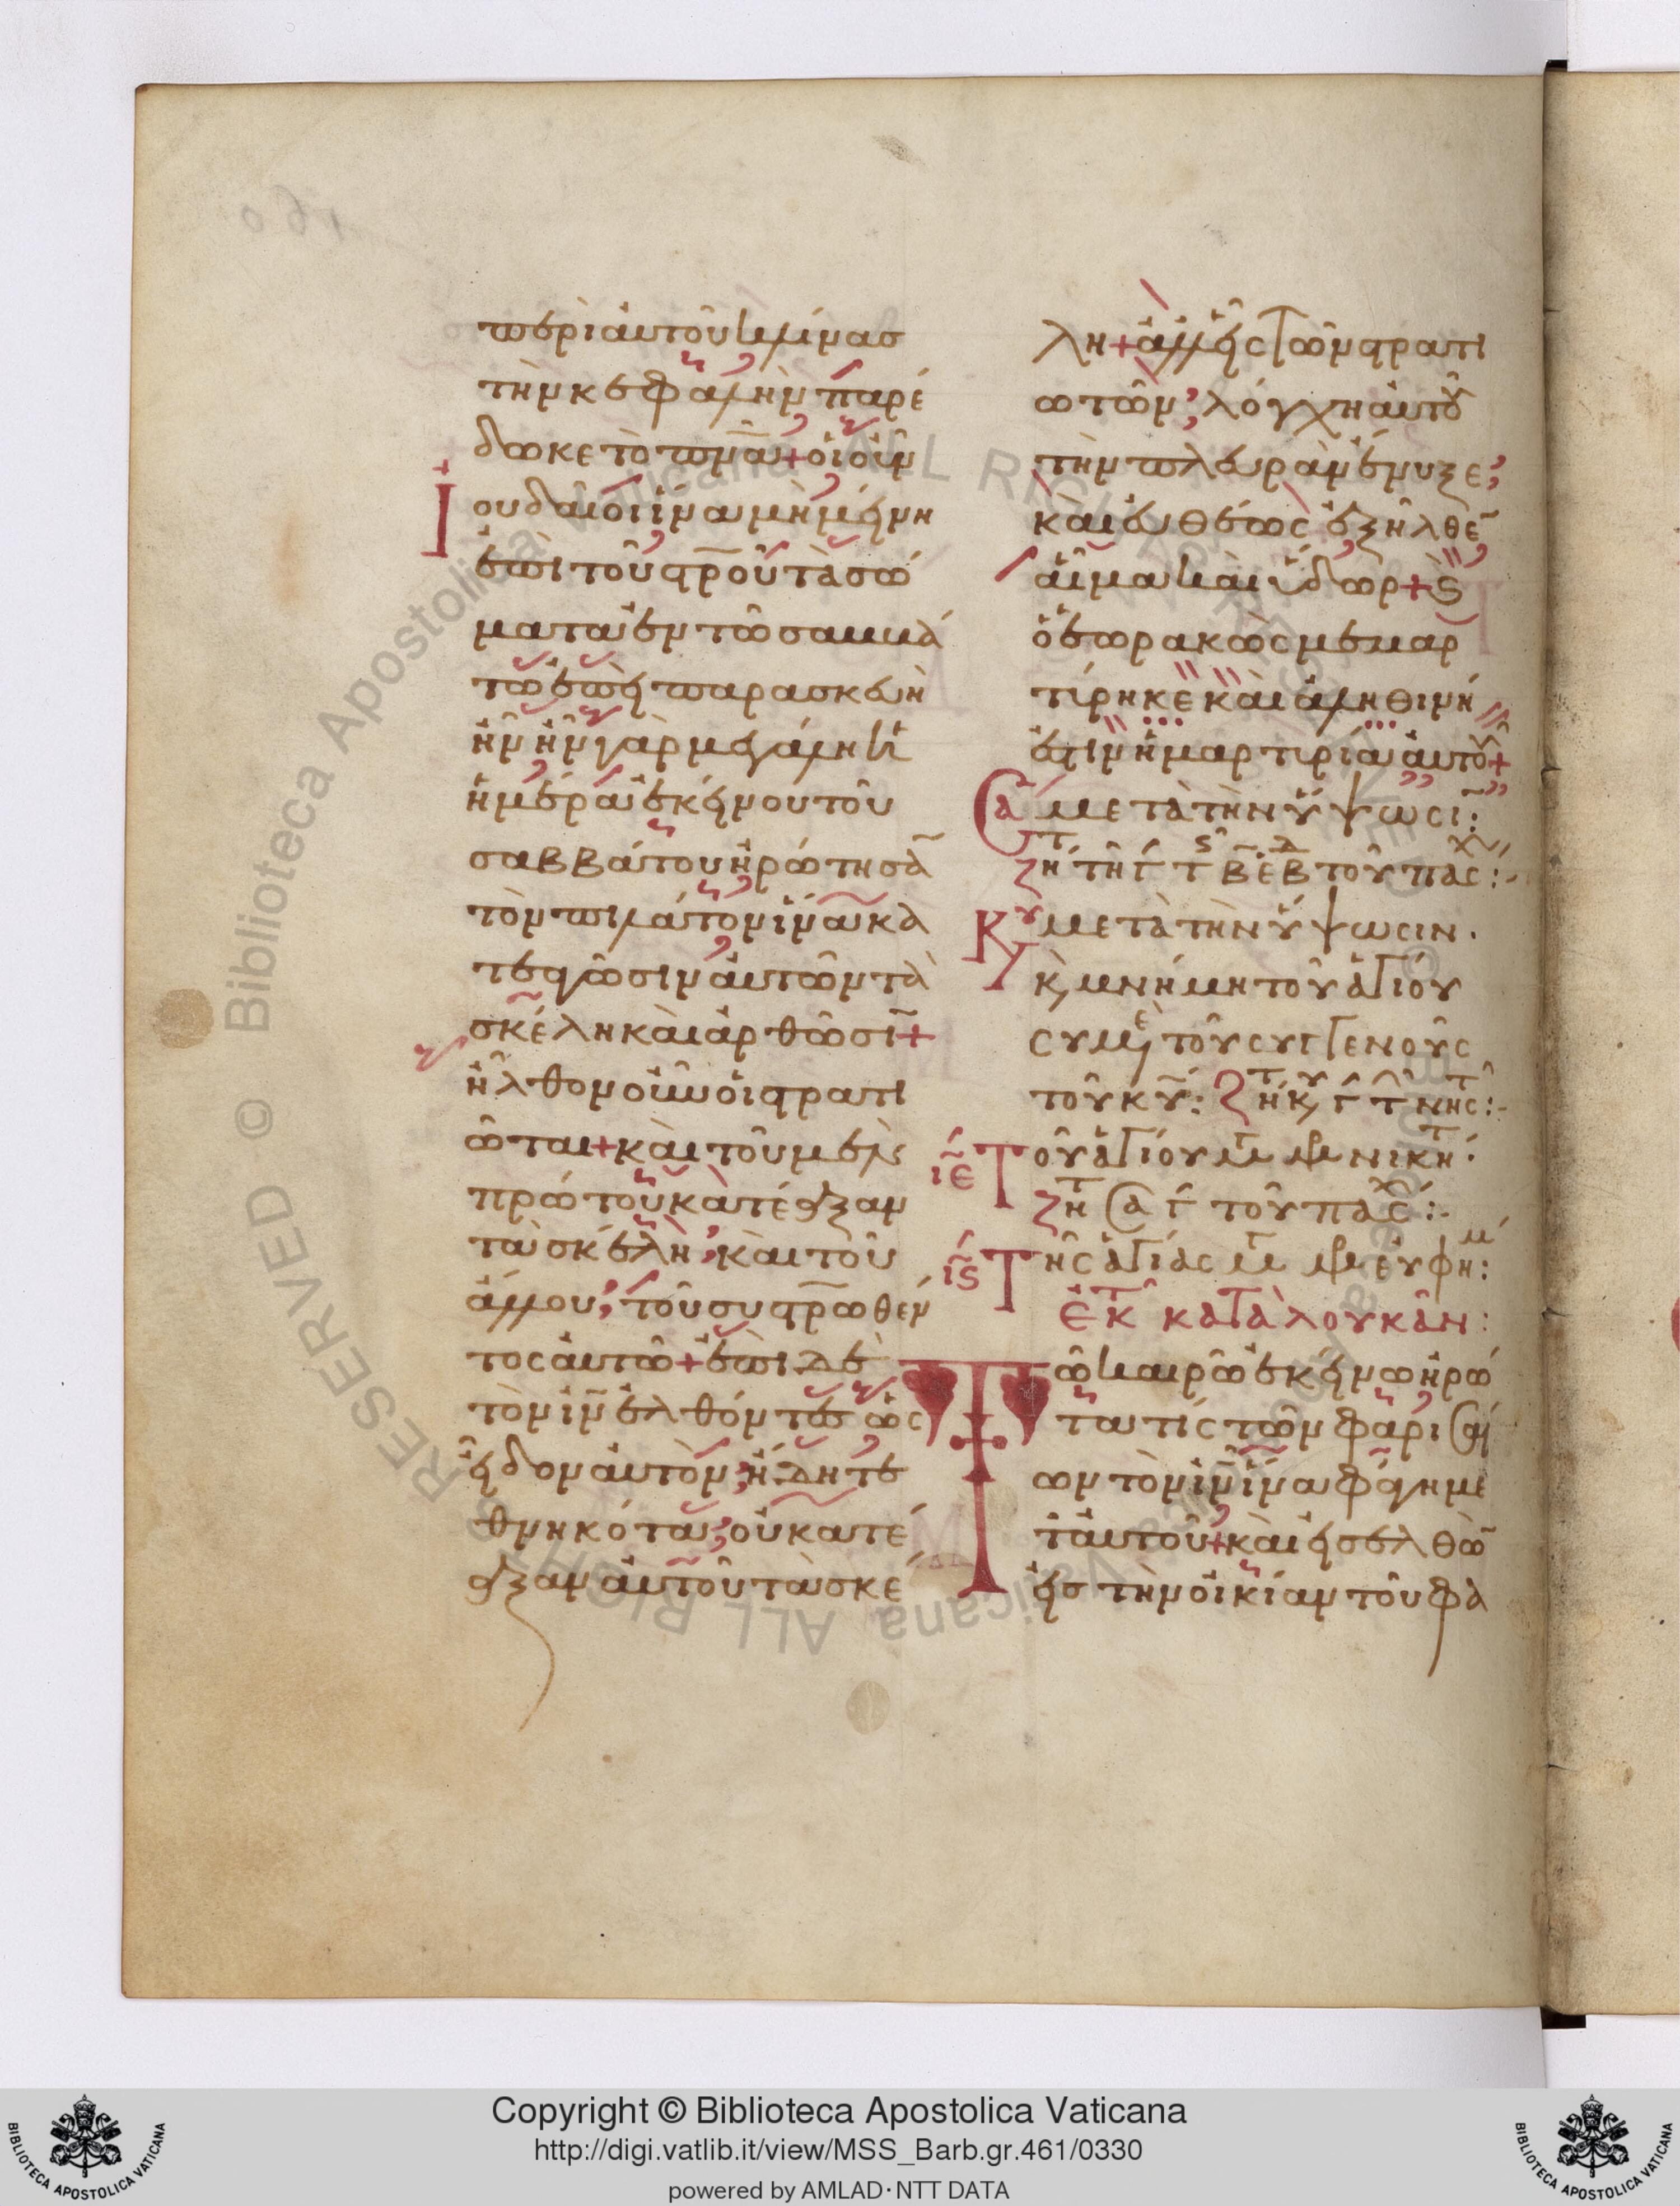 περι αὐτοῦ κλίνασ
τὴν κεφαλὴν παρέ
δωκε τὸ πν̅α + οἱ οὖν
ἰουδαῖοι ἵνα μὴ μείνη
ἐπὶ τοῦ στρ̅οῦ τὰ σώ
ματα ἐν τῶ σαββά
τω ἐπεὶ παρασκευὴ
ἦν ἦν γὰρ μεγάλη ἡ
ἡμέρα ἐκείνου τοῦ
σαββάτου ἠρώτησα̅
τὸν πιλάτον ἵνα κα
τεαγῶσιν αὐτῶν τὰ
σκέλη καὶ ἀρθῶσι̅ +
ἦλθον οὖν οἱ στρατι
ῶται + καὶ τοῦ μὲν
πρώτου κατέαξαν
τὰ σκέλη, καὶ τοῦ
ἄλλου, τοῦ συστρ̅ωθέν
τος αὐτῶ + ἐπὶ δὲ
τὸν ι̅ν̅ ἐλθόντες ὡς
εἶδον αὐτὸν, ἤδη τε
θνηκότα, οὐ κατέ
αξαν αὐτοῦ τὰ σκέ
λη + ἀλλ' εἷς τῶν στρατι
ωτῶν, λόγχη αὐτοῦ
τὴν πλευρὰν ἔνυξε,
καὶ εὐθέως ἐξῆλθε̅
αἷμα καὶ ὕδωρ + ϗ
ὁ ἑωρακὼς μεμαρ
τίρηκε καὶ ἀληθινή
ἐστιν ἡ μαρτιρία αὐτοῦ +
Σα μετὰ τὴν ὕψωσι̅:
ζη τῆ γ τ β εβ τοῦ πάσχ:
Κυ μετὰ τὴν ὕψωσιν.
ϗ μνήμη τοῦ ἁγίου
συμε τοῦ συγγενοῦς
τοῦ κυ̅: Ζητ κυ γ τ νηστ:
ιε Τοῦ ἁγίου μ μρ νικήτ:
ζητ Σα γ τοῦ πάσχ:
ις Τῆς ἁγίας μ μρ εὐφημ:
Ἐκ τ κατὰ λουκᾶν:
Τῶ καιρῶ ἐκείνω ἠρώ
τα τίς τῶν φαρισαί
ων τὸν ι̅ν̅ ἵνα φάγη με
τ' αὐτοῦ + καὶ εἰσελθὼ̅
εἰσ τὴν οἰκίαν τοῦ φα
Copyright © Biblioteca Apostolica Vaticana
http://digi.vatlib.it/view/MSS_Barb.gr.461/0330
powered by AMLAD·NTT DATA